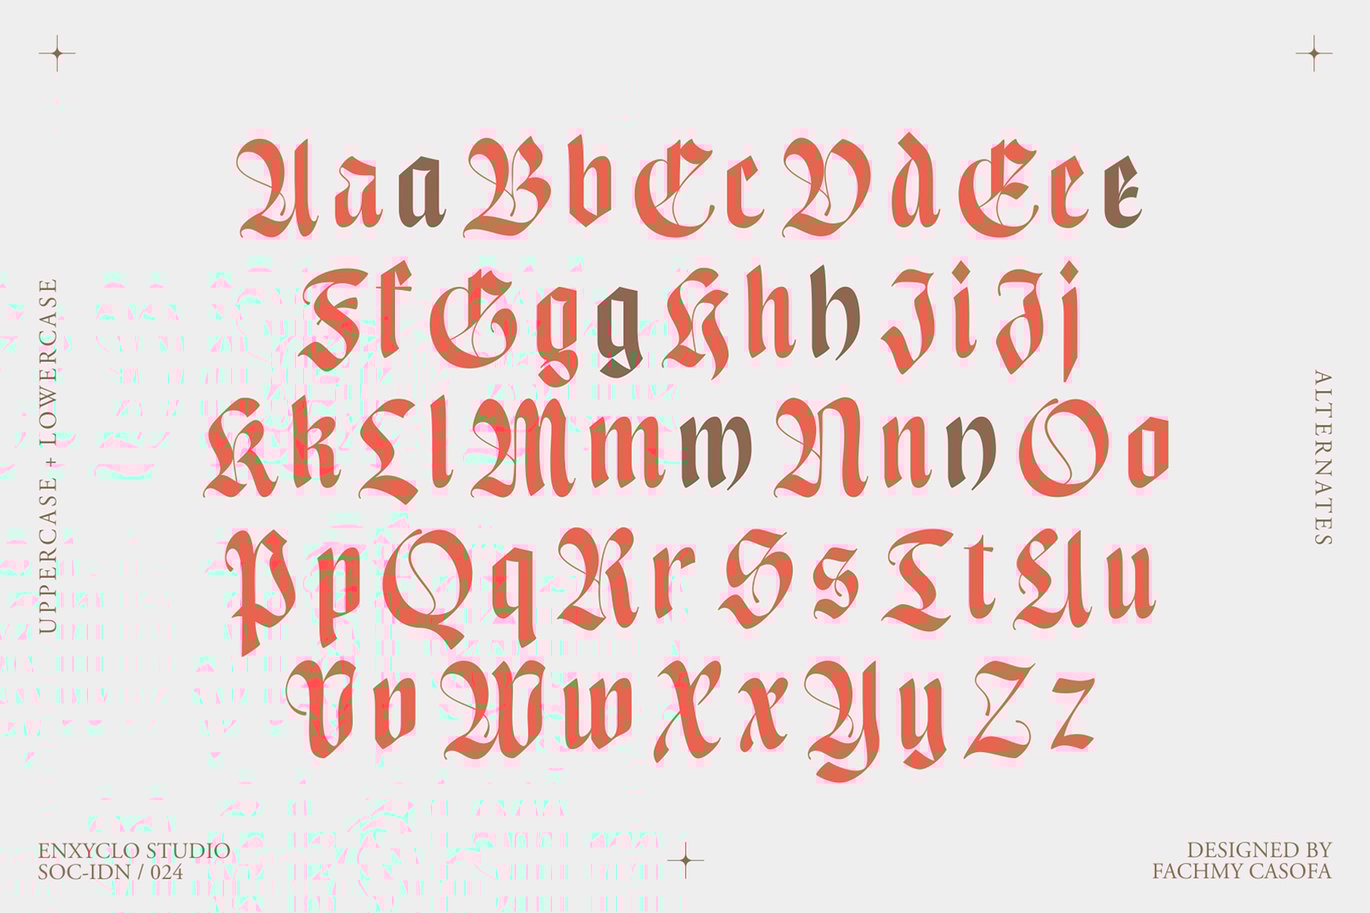 UPPERCASE + LOWERCASE
Aaa Bb Cc Dd Eee
Ff Ggg Hhh Ii Jj
Kk Ll Mmm Nnn Oo
Pp Qq Rr Ss Tt Uu
Vv Ww Xx Yy Zz
ALTERNATES
ENXYCLO STUDIO
SOC-IDN / 024
DESIGNED BY
FACHMY CASOFA